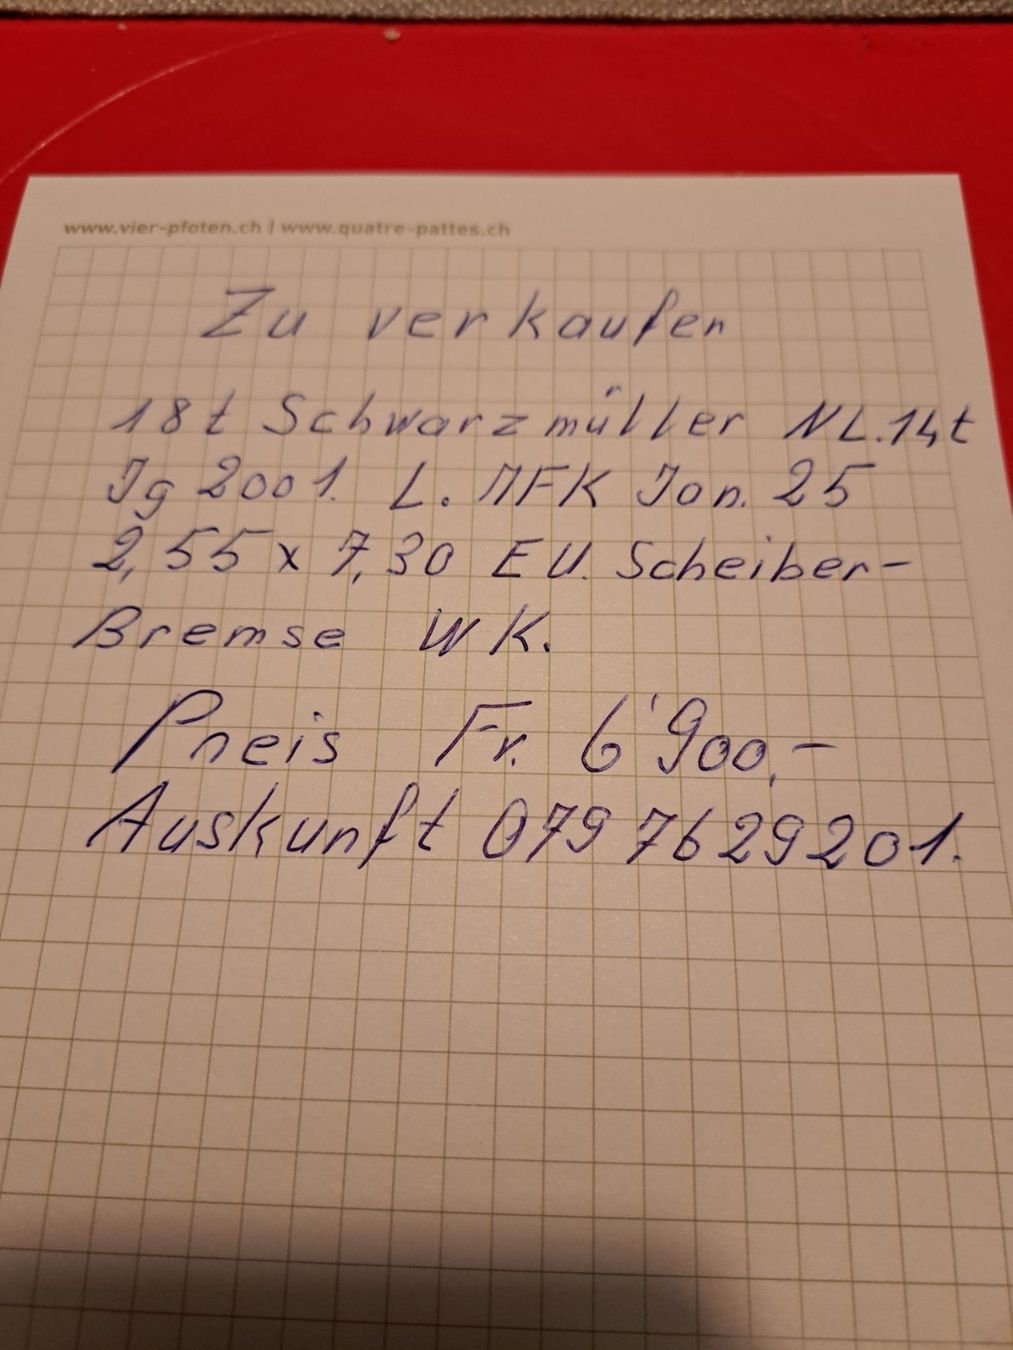 www.vier-pfoten.ch | www.quatre-pattes.ch
Zu verkaufen
18t Schwarzmüller NL.14t
Jg 2001. L. MFK Jan. 25
2,55 x 7,30 EU. Scheiber-
Bremse WK.
Preis Fr. 6'900,-
Auskunft 079 7629201.